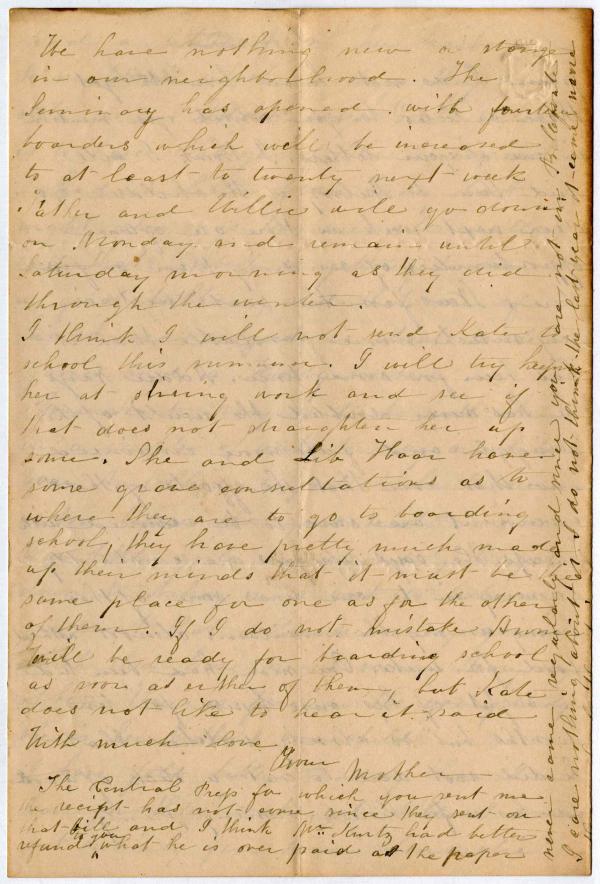 We have nothing new or strange
in our neighborhood. The
Seminary has opened with
boarders which will be increased
to at least to twenty next week
Father and Willie will go down
on Monday and remain until
Saturday morning as they did
through the winter.
I think I will not send Kate to
school this summer. I will try keep
her at work and see if
that does not straighten her up
some. She and Lib Haar have
some grave consultations as to
where they are to go to boarding
school, they have pretty much made
up their minds that it must be
same place for one as for the other
of them. If I do not mistake Ann
will be ready for boarding school
as soon as either of them, but Kate
does not like to hear it said
With much love
Your Mother
The Central Press for which you sent me
the recipt has not come since they sent on
that bill and I think Mr. Kurtz had better
refund to you what he is over paid as the paper
never came regularly and since you are not in
I care nothing about it. I do not think the last year it came more